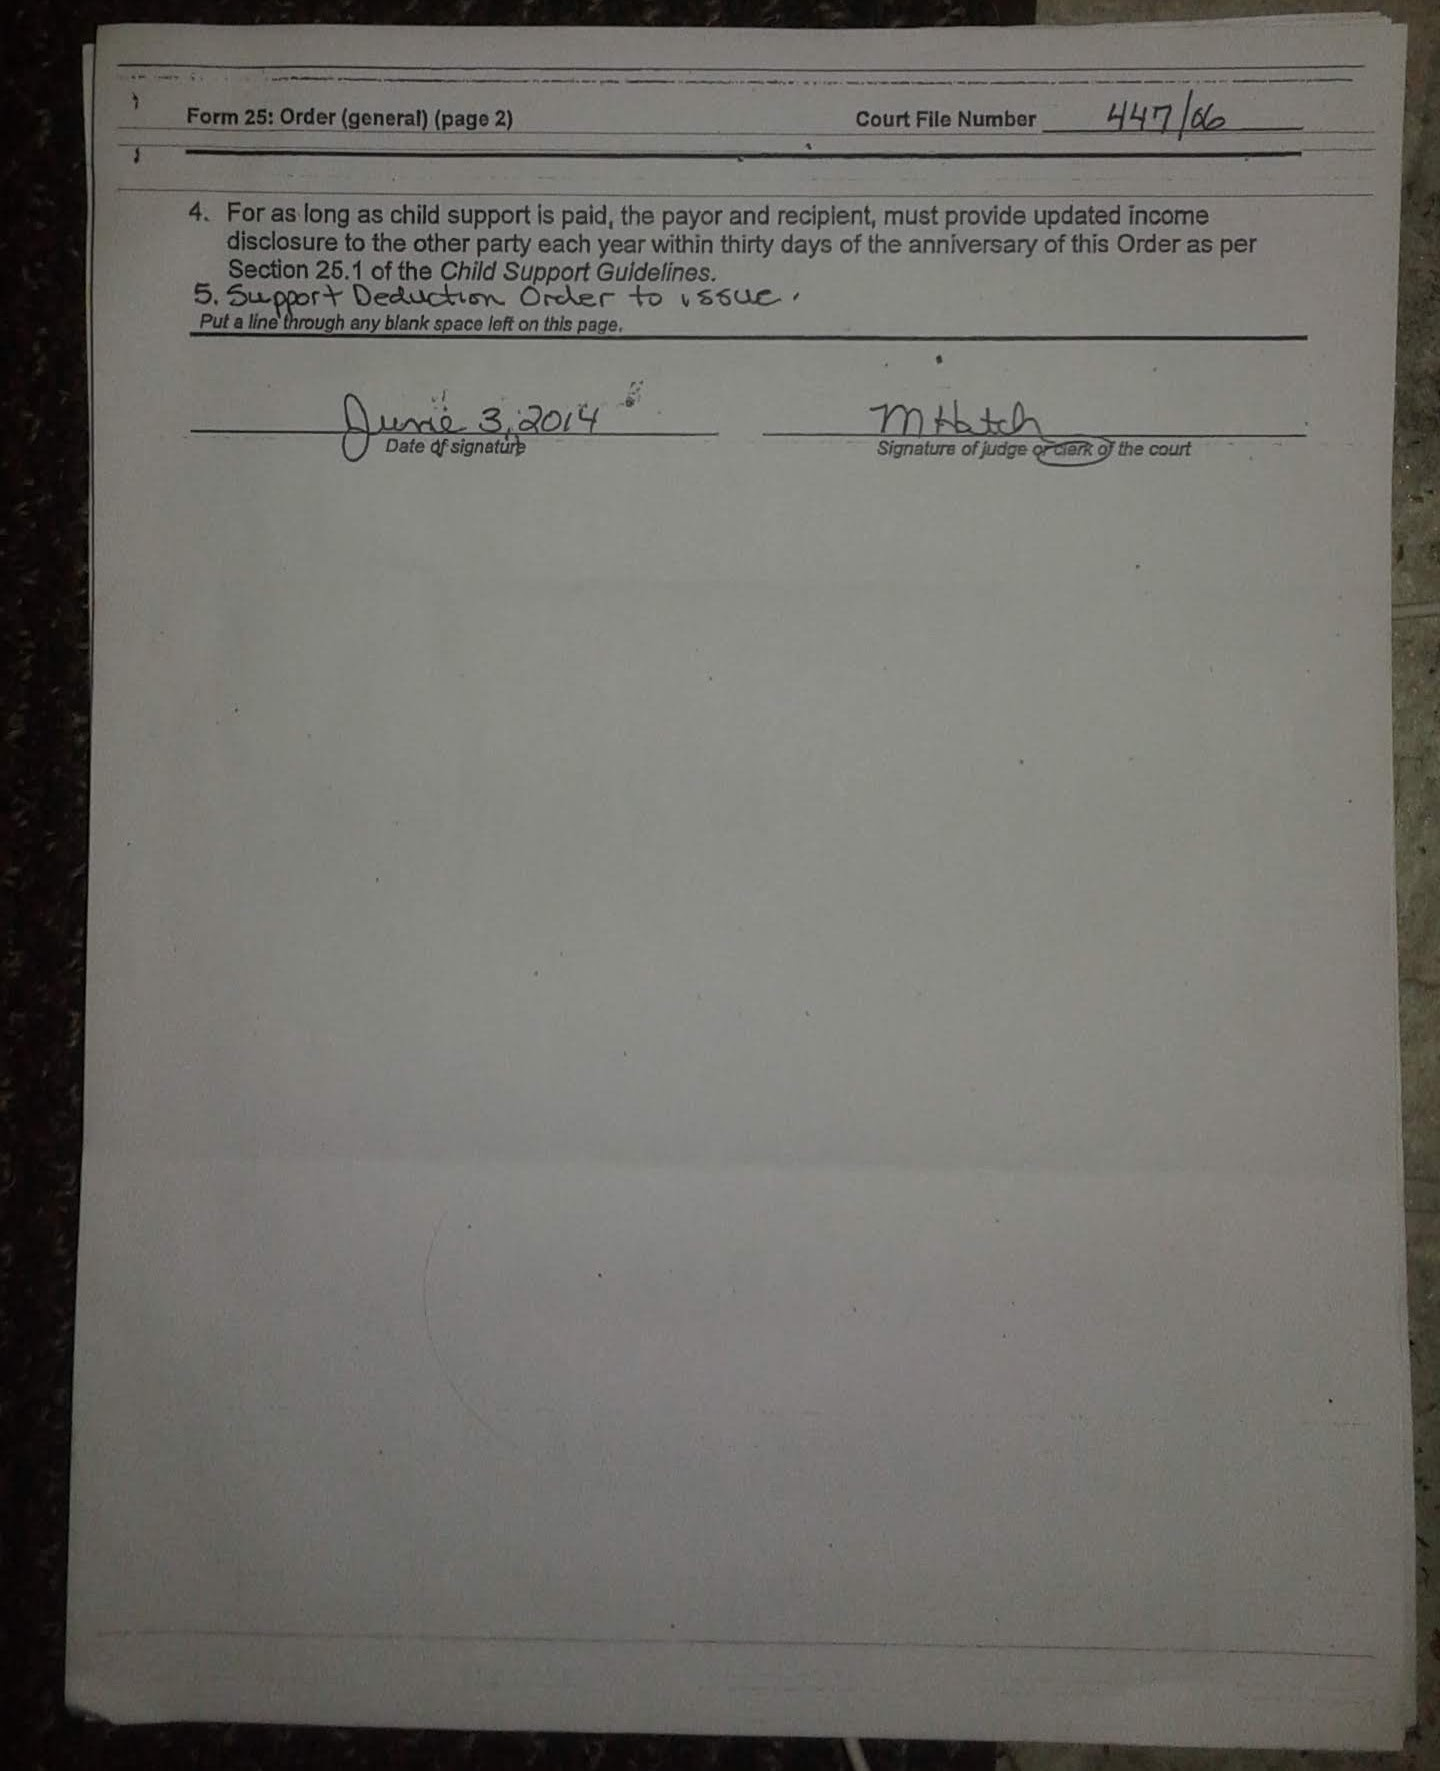 Form 25: Order (general) (page 2) Court File Number 447/06
4. For as long as child support is paid, the payor and recipient, must provide updated income
disclosure to the other party each year within thirty days of the anniversary of this Order as per
Section 25.1 of the Child Support Guidelines.
5. Support Deduction Order to issue.
Put a line through any blank space left on this page.
June 3, 2014 M Hatch
Date of signature Signature of judge or clerk of the court